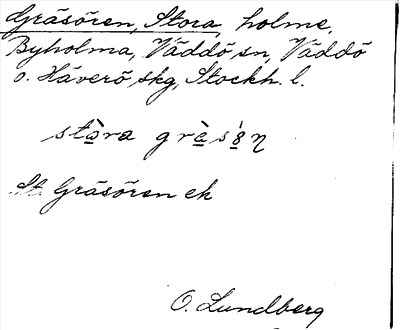 Gräsören, Stora, holme,
Byholma, Väddö sn, Väddö
o. Häverö skg, Stockh. l.
stȧ̀ra grȧ̀sö̀ŋ
St. Gräsören ek
O. Lundberg